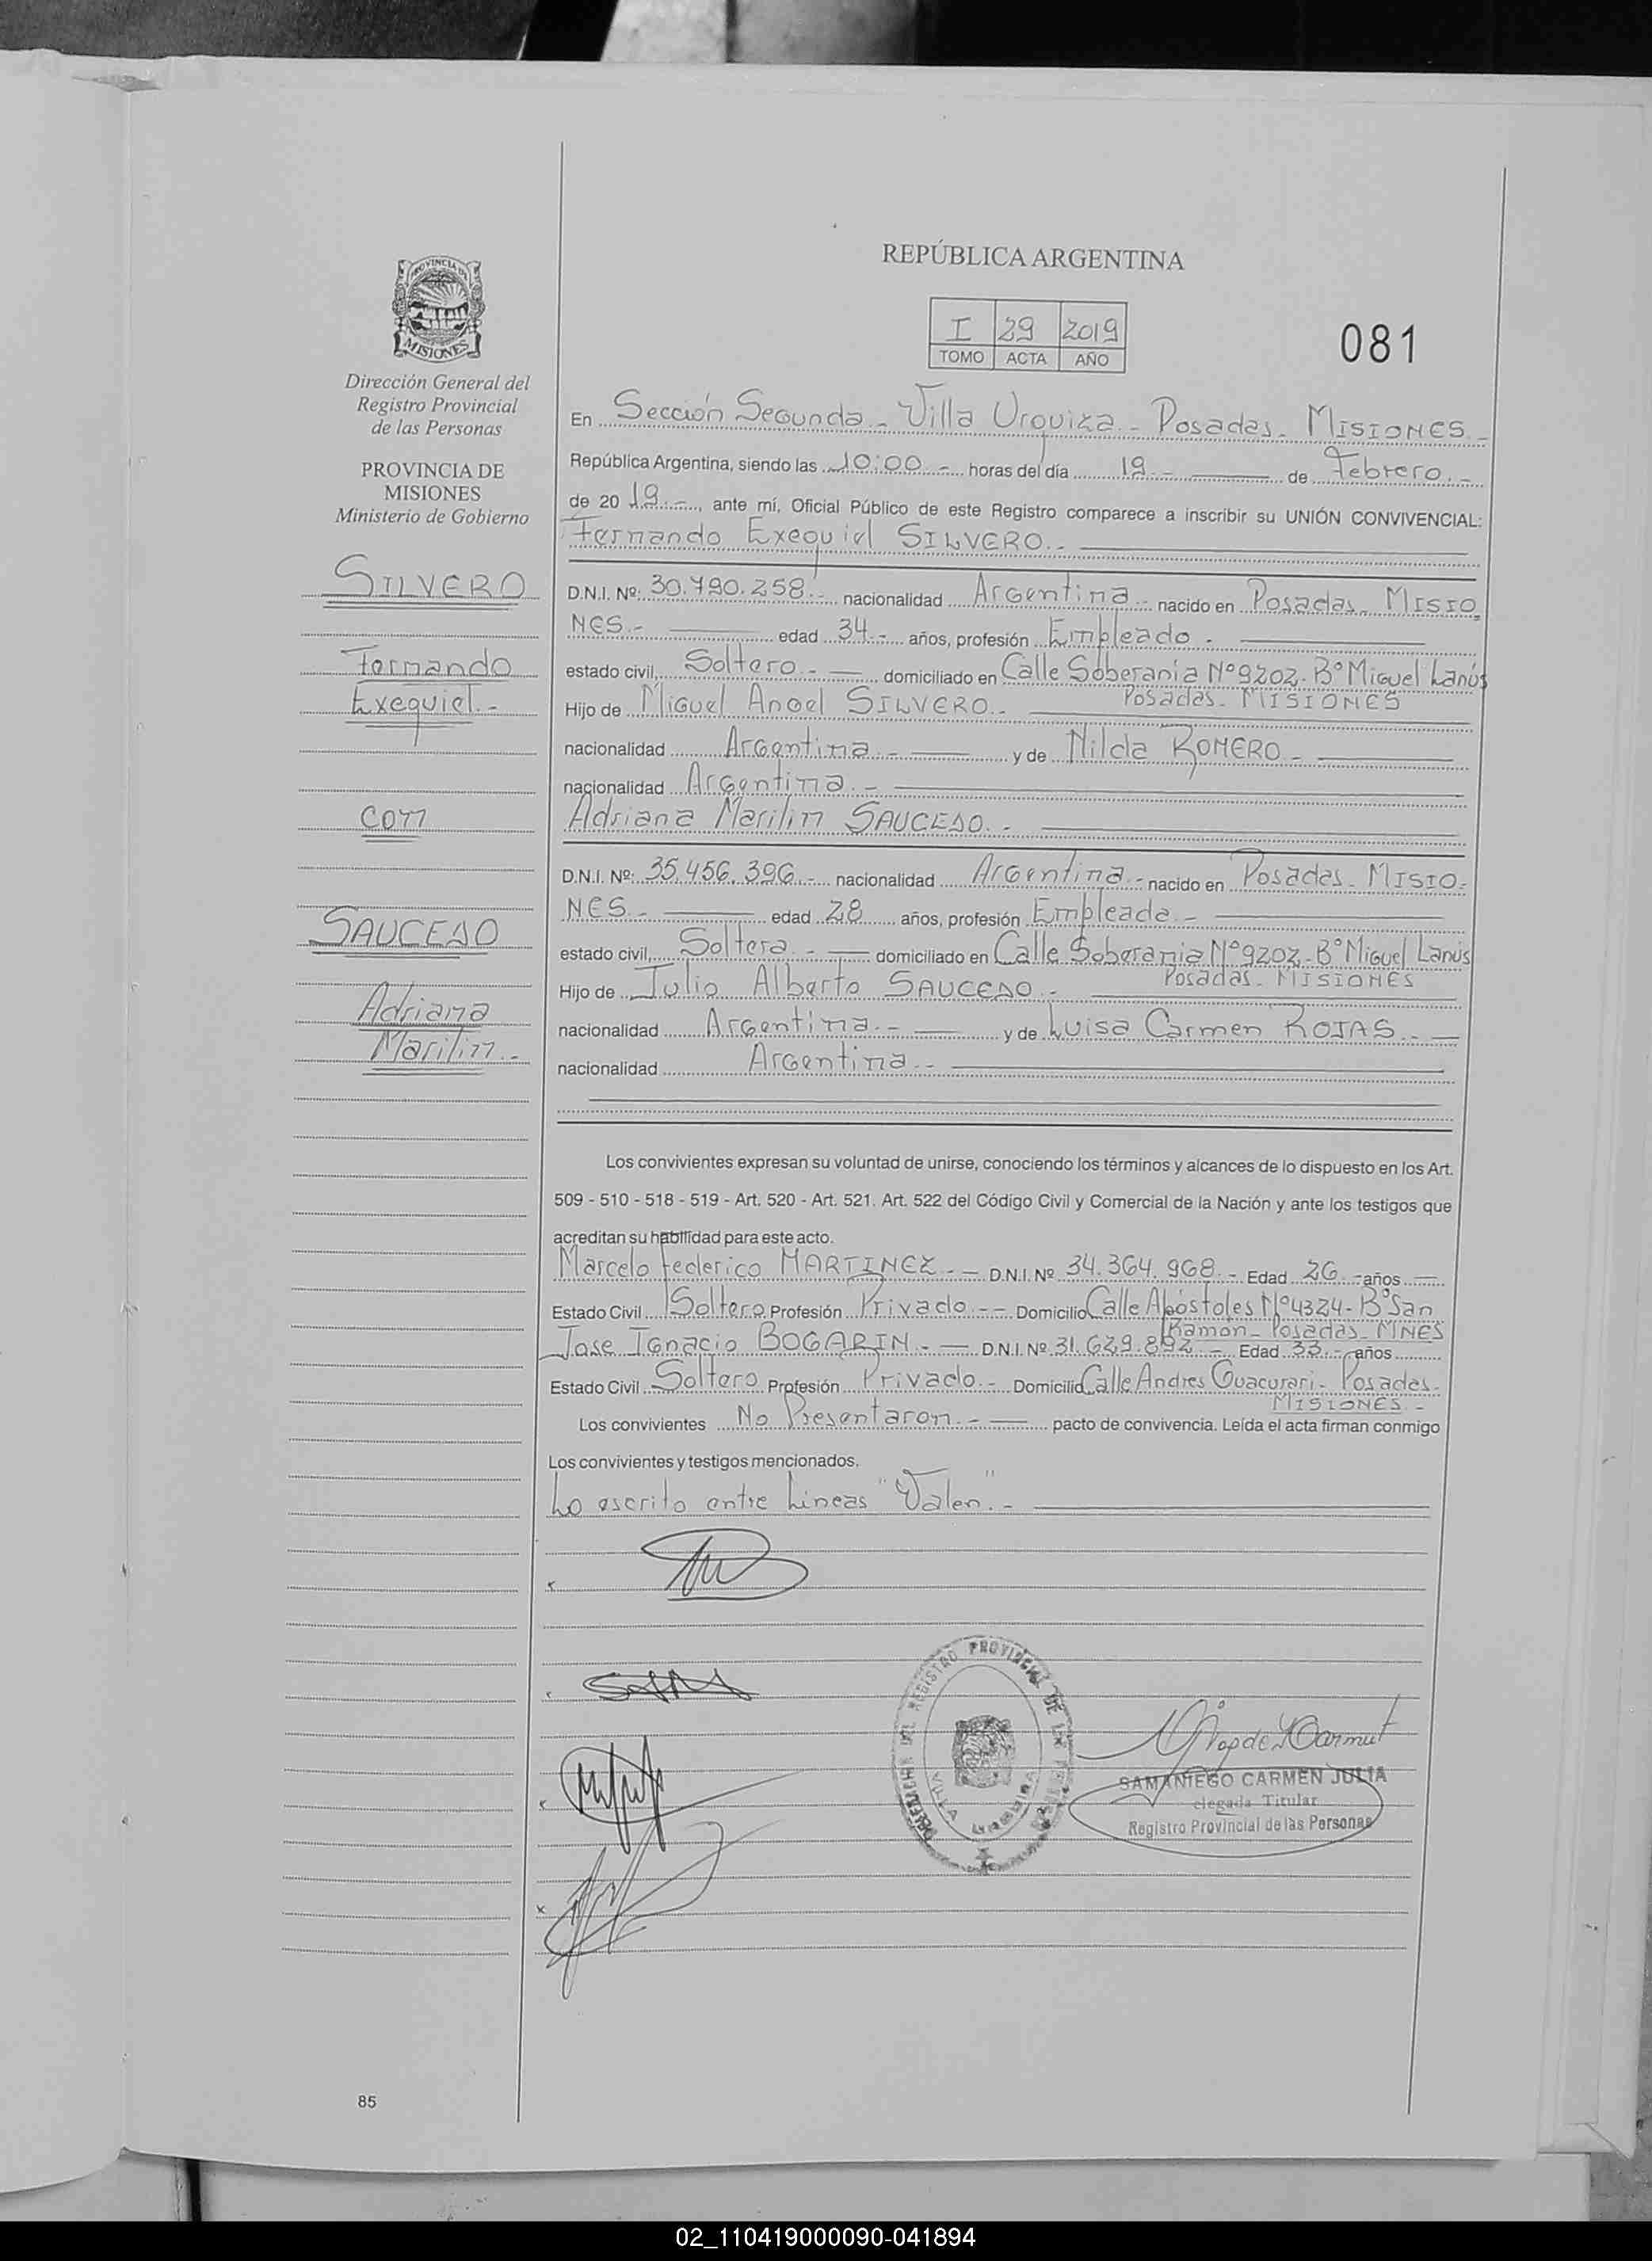 REPÚBLICA ARGENTINA
I 29 2019
TOMO ACTA AÑO
081
PROVINCIA DE
MISIONES
Dirección General del
Registro Provincial
de las Personas
PROVINCIA DE
MISIONES
Ministerio de Gobierno
SILVERO
Fernando
Exequiel.-
con
SAUCEDO
Adriana
Marilin.-
En Sección Segunda - Villa Urquiza - Posadas - MISIONES -
República Argentina, siendo las 10:00 - horas del día 19 - de Febrero. -
de 20 19.-, ante mí, Oficial Público de este Registro comparece a inscribir su UNIÓN CONVIVENCIAL:
Fernando Exequiel SILVERO.-
D.N.I. Nº: 30.790.258.- nacionalidad Argentina - nacido en Posadas - MISIO
NES.- edad 34.- años, profesión Empleado -
estado civil, Soltero - domiciliado en Calle Soberania Nº 9202. Bº Miguel Lanús
Posadas - MISIONES
Hijo de Miguel Angel SILVERO.-
nacionalidad Argentina.- y de Nilda ROMERO -
nacionalidad Argentina. -
Adriana Marilin SAUCEDO. -
D.N.I. Nº: 35.456.396.- nacionalidad Argentina - nacido en Posadas - MISIO-
NES - edad 28 años, profesión Empleada -
estado civil, Soltera - domiciliado en Calle Soberania Nº 9202 - Bº Miguel Lanús
Posadas - MISIONES
Hijo de Julio Alberto SAUCEDO -
nacionalidad Argentina.- y de Luisa Carmen ROJAS. -
nacionalidad Argentina.-
Los convivientes expresan su voluntad de unirse, conociendo los términos y alcances de lo dispuesto en los Art.
509 - 510 - 518 - 519 - Art. 520 - Art. 521. Art. 522 del Código Civil y Comercial de la Nación y ante los testigos que
acreditan su habilidad para este acto.
Marcelo Federico MARTINEZ - D.N.I. Nº 34.364.968. - Edad 26.- años
Estado Civil Soltero Profesión Privado - Domicilio Calle Apóstoles Nº 4324 - Bº San
Ramon - Posadas - MNES
Jose Ignacio BOGARIN - D.N.I. Nº 31.629.892 - Edad 33.- años
Estado Civil Soltero Profesión Privado - Domicilio Calle Andres Guacurari - Posadas -
MISIONES -
Los convivientes No Presentaron.- pacto de convivencia. Leída el acta firman conmigo
Los convivientes y testigos mencionados.
Lo escrito entre Lineas "Valen".-
REGISTRO PROVINCIAL DE
VILLA
SAMANIEGO CARMEN JULIA
elegada Titular
Registro Provincial de las Personas
85
02_110419000090-041894